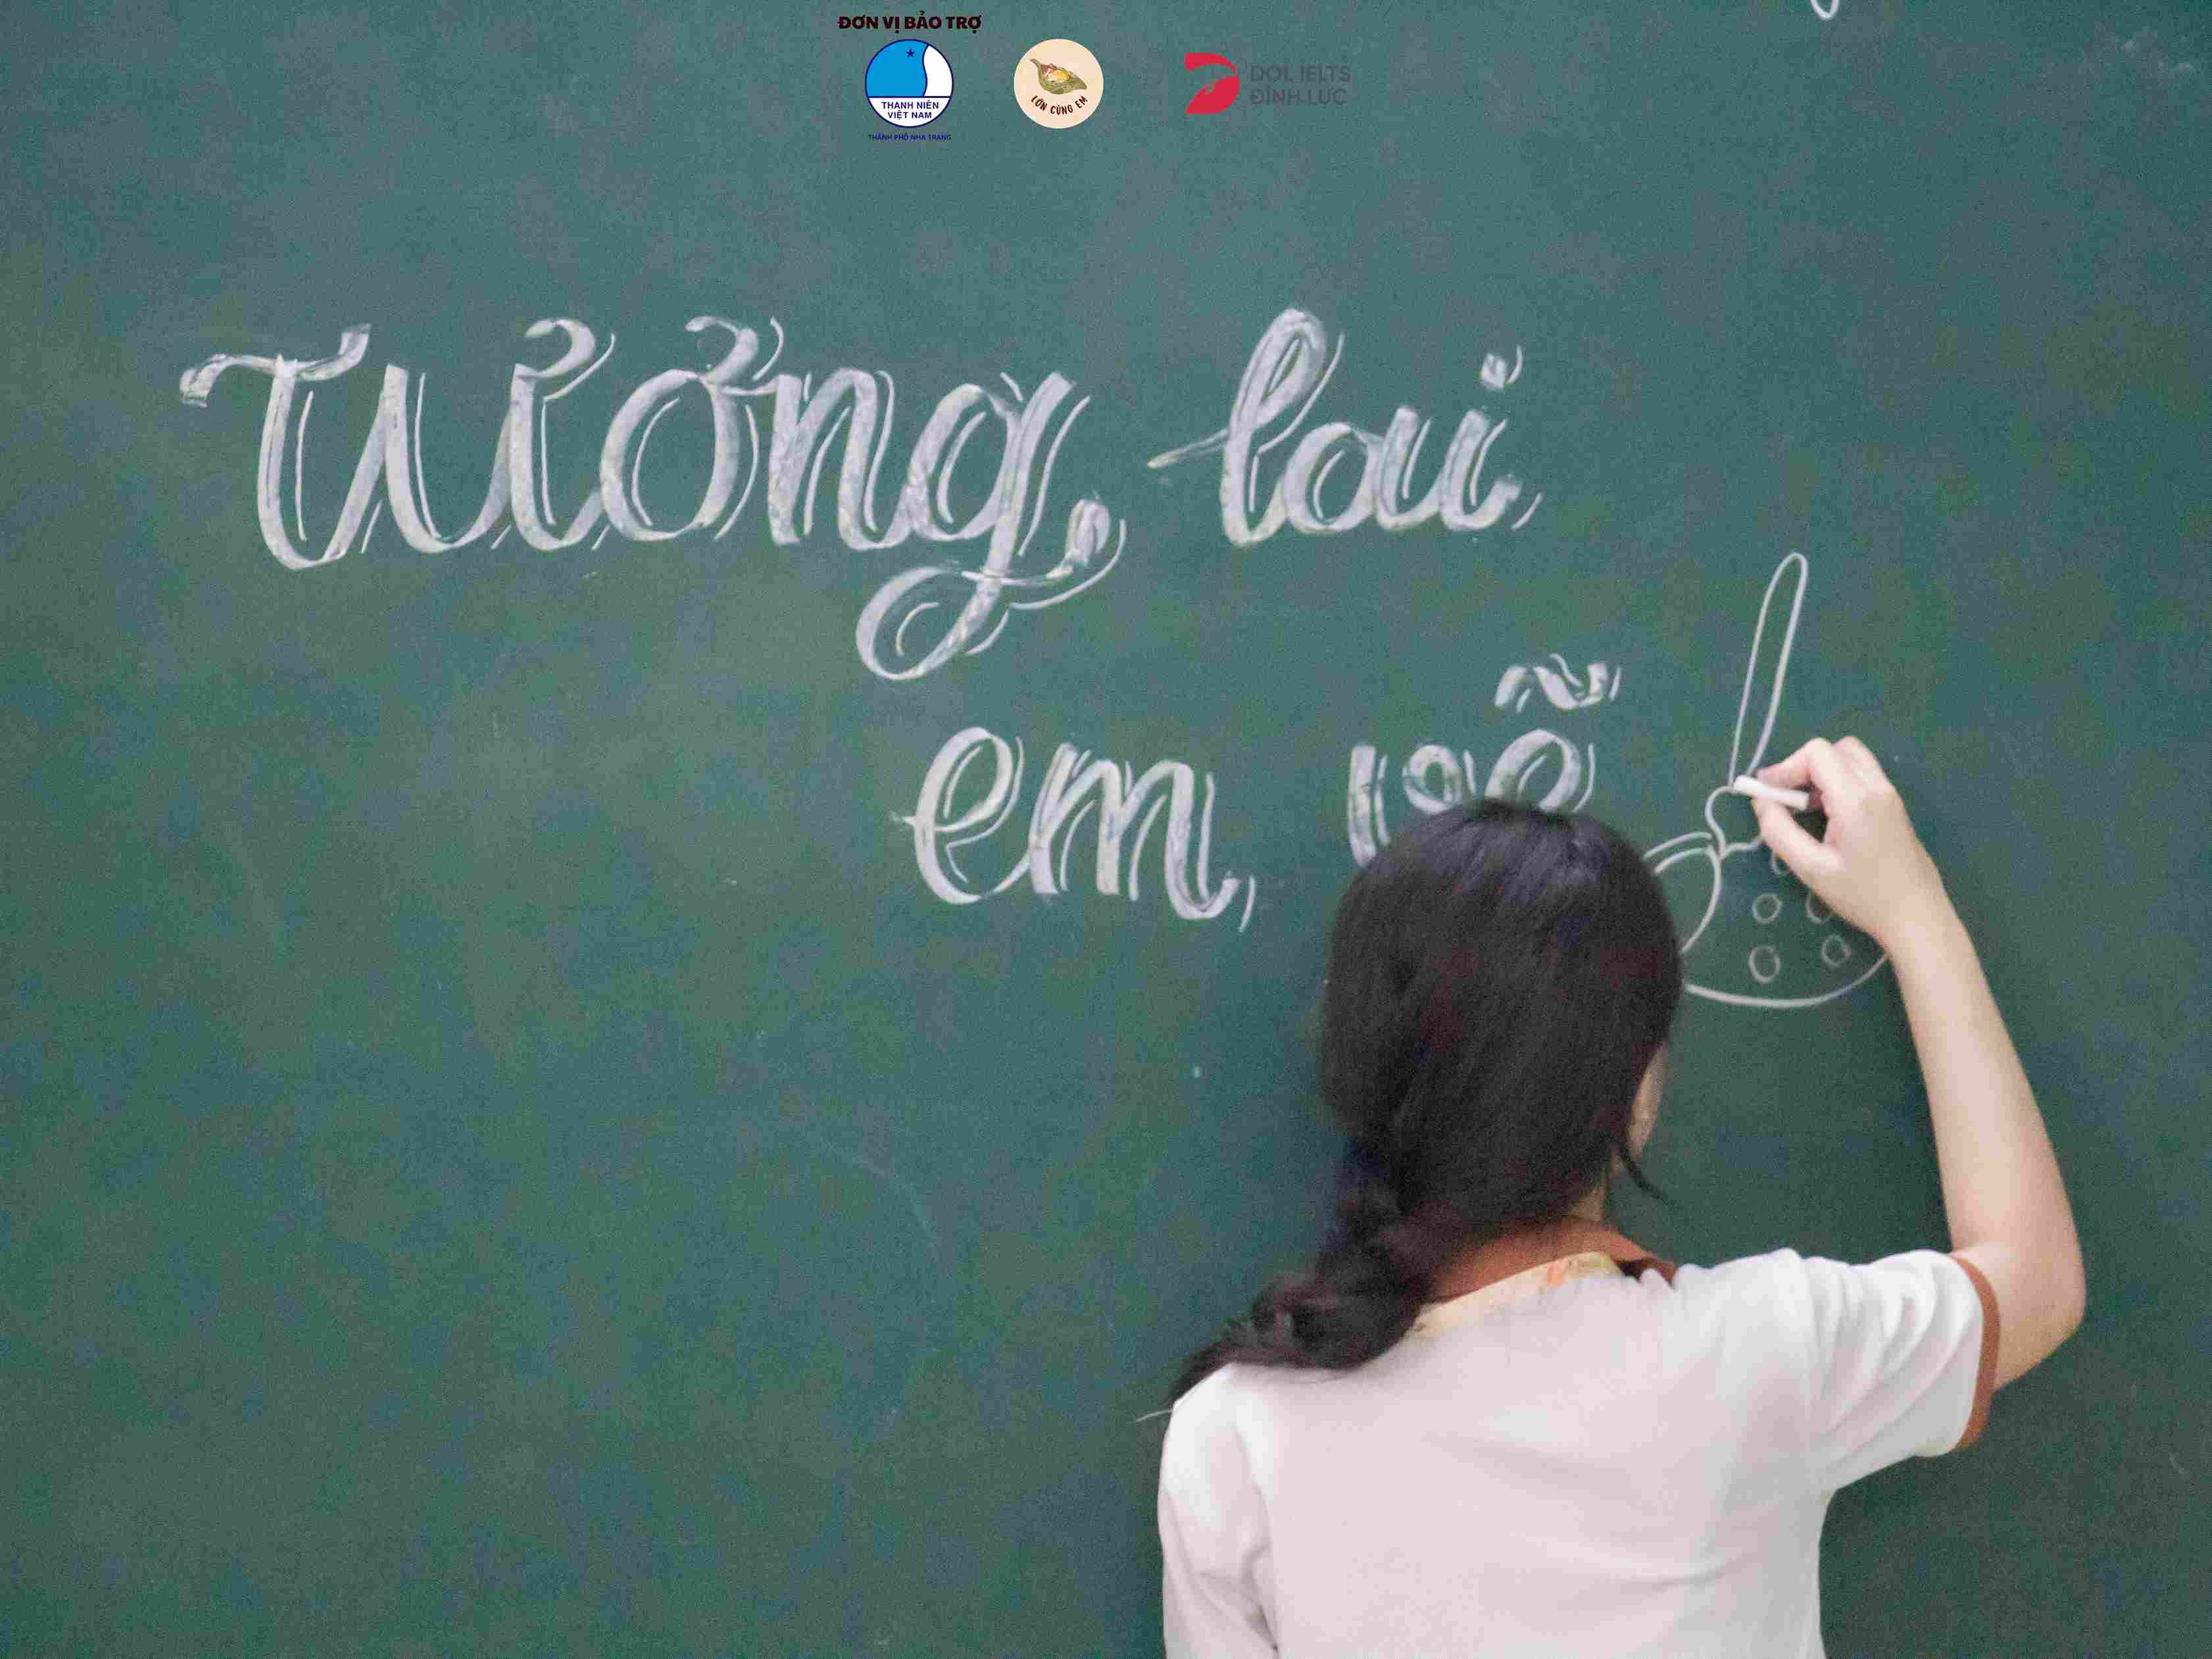 ĐƠN VỊ BẢO TRỢ
THANH NIÊN
VIỆT NAM
THÀNH PHỐ NHA TRANG
LỚN CÙNG EM
DOL IELTS
ĐÌNH LỰC
Tương lai
em vẽ